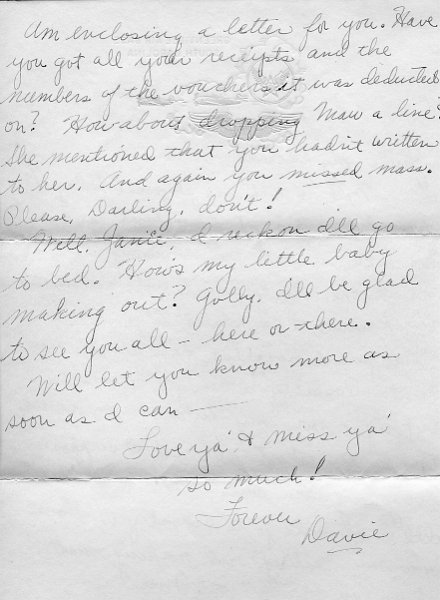 Am enclosing a letter for you. Have
you got all your receipts and the
numbers of the vouchers it was deducted
on? How about dropping Maw a line?
She mentioned that you hadn't written
to her. And again you missed mass.
Please, Darling, don't!
Well, Janie, I reckon I'll go
to bed. How's my little baby
making out? Golly, I'll be glad
to see you all – here or there.
Will let you know more as
soon as I can —
Love ya' & miss ya'
so much!
Forever
Davie